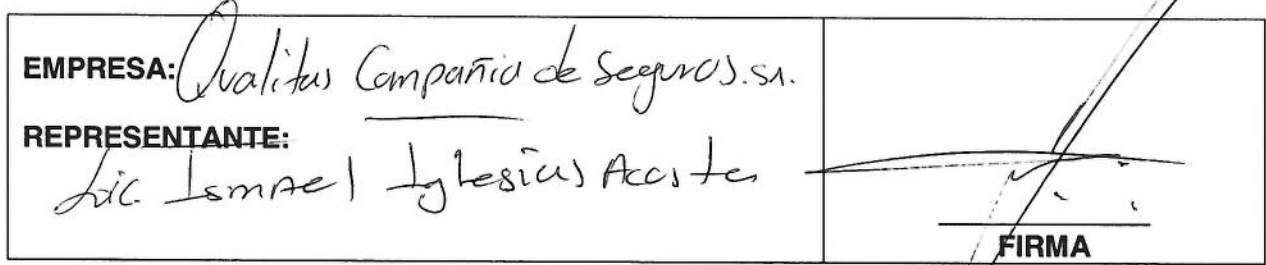 EMPRESA: Qualitas Compañia de Seguros.SA.
REPRESENTANTE:
Lic. Ismael Iglesias Acosta
FIRMA